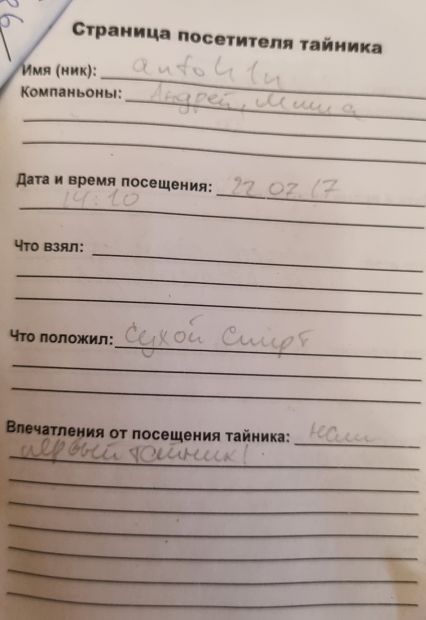 Страница посетителя тайника
Имя (ник): anto41n
Компаньоны: Андрей, Миша
Дата и время посещения: 22.07.17
14:10
Что взял:
Что положил: Сухой спирт
Впечатления от посещения тайника: Наш
первый тайник!